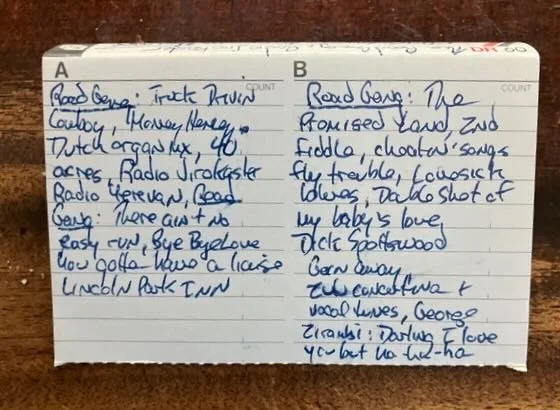 A
COUNT
Road Gang: Truck Drivin
Cowboy, Harvey Heney,
Dutch organ mx, 40
acres, Radio Jirokaster
Radio Yerevan, Road
Gang: There ain't no
easy run, Bye Bye Love
You gotta have a license
Lincoln Park INN
B
COUNT
Road Gang: The
Promised Land, 2nd
fiddle, chootin' songs
fly trouble, Lovesick
blues, Double shot of
my baby's love,
Dick Spottswood
Goin away,
Zulu concertina +
vocal tunes, George
Zirambi: Darling I love
you but ha-ha-ha